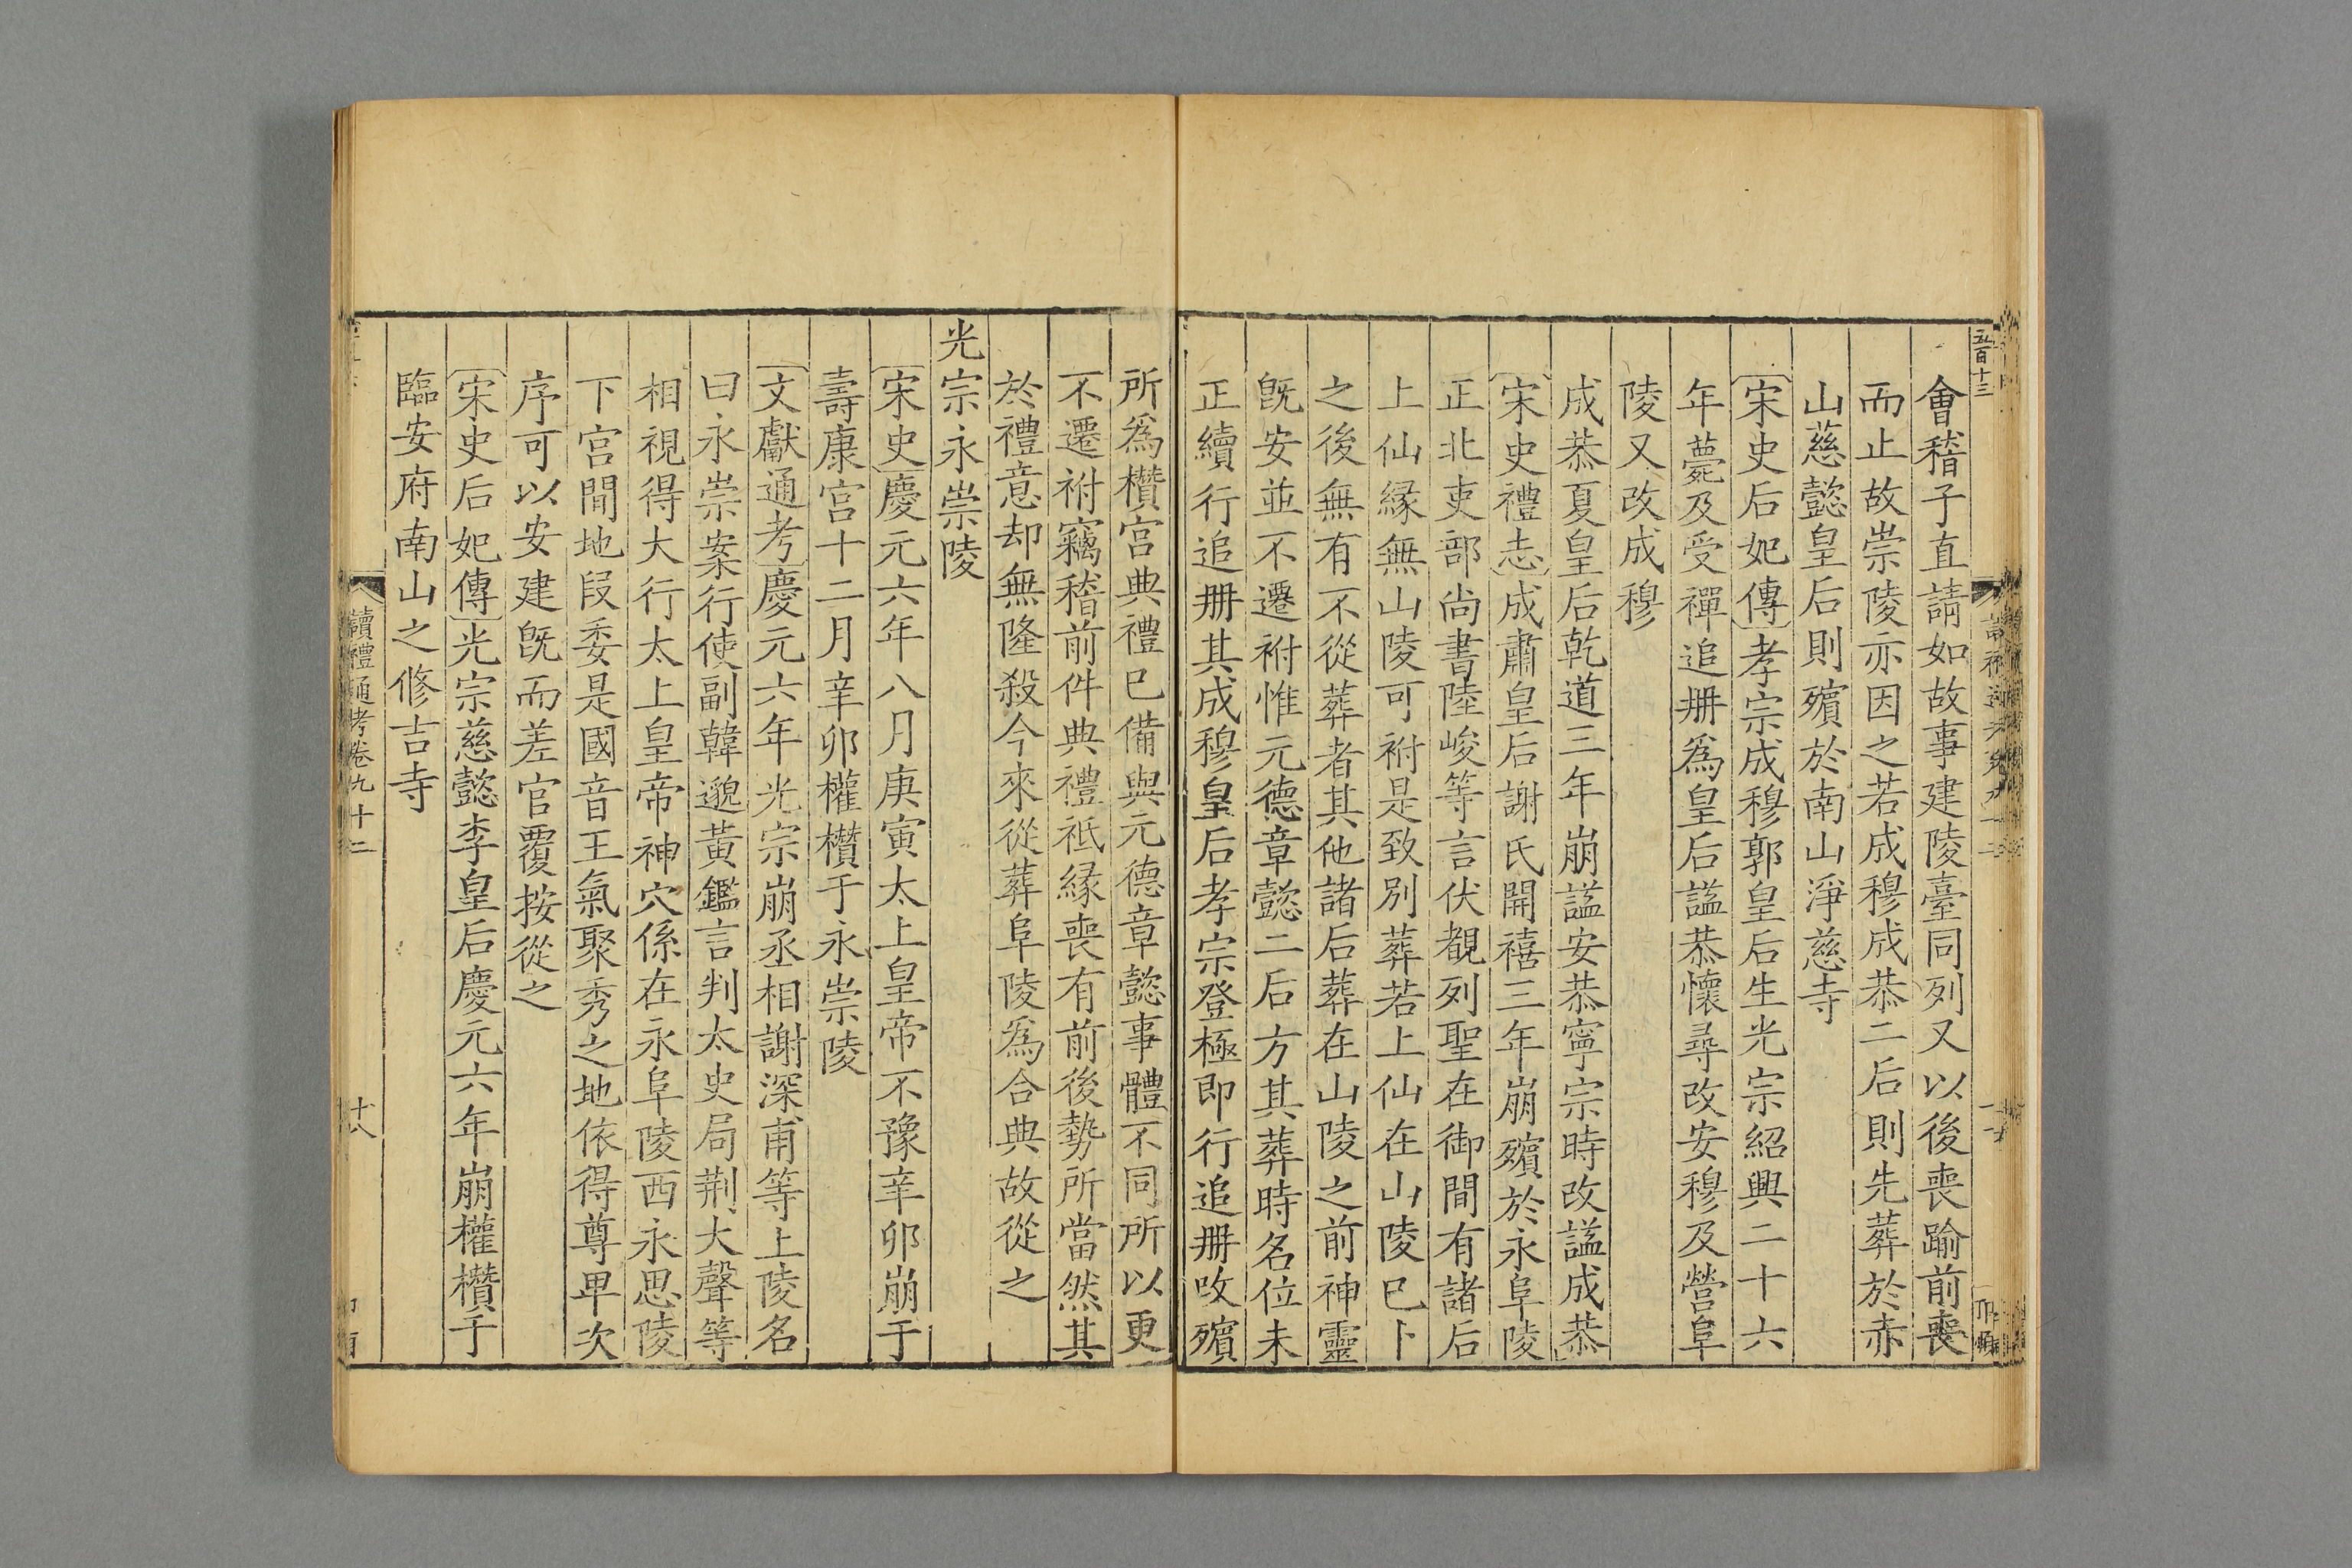 五百十三
會稽子直請如故事建陵臺同列又以後喪踰前喪
而止故崇陵亦因之若成穆成恭二后則先葬於赤
山慈懿皇后則殯於南山淨慈寺
〔宋史后妃傳〕孝宗成穆郭皇后生光宗紹興二十六
年薨及受禪追册爲皇后諡恭懷尋改安穆及營阜
陵又改成穆
成恭夏皇后乾道三年崩諡安恭寧宗時改諡成恭
〔宋史禮志〕成肅皇后謝氏開禧三年崩殯於永阜陵
正北吏部尚書陸峻等言伏覩列聖在御間有諸后
上仙緣無山陵可祔是致別葬若上仙在山陵已卜
之後無有不從葬者其他諸后葬在山陵之前神靈
旣安並不遷祔惟元德章懿二后方其葬時名位未
正續行追册其成穆皇后孝宗登極即行追册改殯
所爲欑宮典禮已備與元德章懿事體不同所以更
不遷祔竊稽前件典禮祗緣喪有前後勢所當然其
於禮意却無隆殺今來從葬阜陵爲合典故從之
光宗永崇陵
〔宋史〕慶元六年八月庚寅太上皇帝不豫辛卯崩于
壽康宮十二月辛卯權欑于永崇陵
〔文獻通考〕慶元六年光宗崩丞相謝深甫等上陵名
曰永崇案行使副韓邈黃鑑言判太史局荆大聲等
相視得大行太上皇帝神穴係在永阜陵西永思陵
下宮間地段委是國音王氣聚秀之地依得尊卑次
序可以安建旣而差官覆按從之
〔宋史后妃傳〕光宗慈懿李皇后慶元六年崩權欑于
臨安府南山之修吉寺
讀禮通考卷九十二
十八